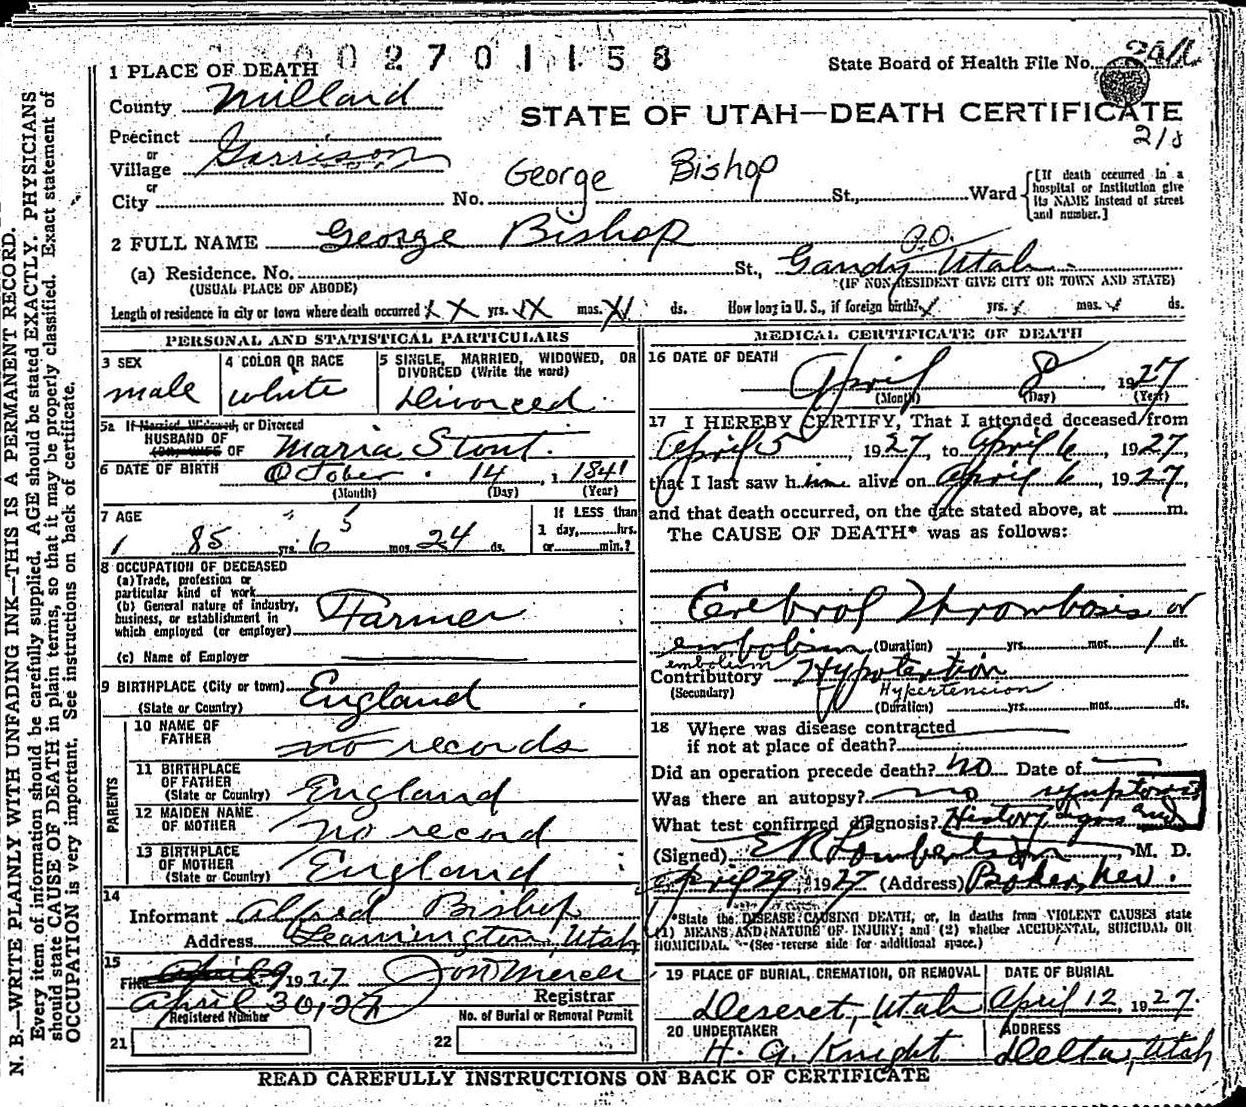 0 0 2 7 0 1 1 5 8
State Board of Health File No.
1 PLACE OF DEATH
County Millard
STATE OF UTAH—DEATH CERTIFICATE
Precinct
or
Village Garrison
or
City No. George Bishop St., Ward
[If death occurred in a hospital or Institution give its NAME instead of street and number.]
2 FULL NAME George Bishop
P.O.
(a) Residence. No. St., Gandy Utah
(USUAL PLACE OF ABODE) (IF NON-RESIDENT GIVE CITY OR TOWN AND STATE)
Length of residence in city or town where death occurred X X yrs. X mos. X ds. How long in U.S., if foreign birth? yrs. mos. ds.
PERSONAL AND STATISTICAL PARTICULARS
3 SEX
male
4 COLOR OR RACE
white
5 SINGLE, MARRIED, WIDOWED, OR DIVORCED (Write the word)
Divorced
5a If Married, Widowed, or Divorced
HUSBAND OF
(or) WIFE OF Maria Stout
6 DATE OF BIRTH October 14, 1841
(Month) (Day) (Year)
7 AGE
85 yrs. 6 5 mos. 24 ds.
If LESS than
1 day, hrs.
or min.?
8 OCCUPATION OF DECEASED
(a) Trade, profession or
particular kind of work
(b) General nature of industry,
business, or establishment in
which employed (or employer) Farmer
(c) Name of Employer
9 BIRTHPLACE (City or town)
(State or Country) England
PARENTS
10 NAME OF
FATHER no records
11 BIRTHPLACE
OF FATHER
(State or Country) England
12 MAIDEN NAME
OF MOTHER no record
13 BIRTHPLACE
OF MOTHER
(State or Country) England
14
Informant Alfred Bishop
Address Leamington, Utah
15
Filed April 9 1927 Jon Mercer
April 30, 27 Registrar
Registered Number No. of Burial or Removal Permit
21 22
MEDICAL CERTIFICATE OF DEATH
16 DATE OF DEATH
April 8, 1927
(Month) (Day) (Year)
17 I HEREBY CERTIFY, That I attended deceased from
April 5, 1927, to April 6, 1927,
that I last saw him alive on April 6, 1927,
and that death occurred, on the date stated above, at m.
The CAUSE OF DEATH* was as follows:
Cerebral Thrombosis or
embolism (Duration) yrs. mos. 1 ds.
embolism
Contributory Hypotention
(Secondary) Hypertension
(Duration) yrs. mos. ds.
18 Where was disease contracted
if not at place of death?
Did an operation precede death? no Date of
Was there an autopsy? no symptoms
What test confirmed diagnosis? History signs and
(Signed) E R Lombertson, M. D.
April 29, 1927 (Address) Baker, Nev.
*State the DISEASE CAUSING DEATH, or, in deaths from VIOLENT CAUSES state
(1) MEANS AND NATURE OF INJURY; and (2) whether ACCIDENTAL, SUICIDAL OR
HOMICIDAL. (See reverse side for additional space.)
19 PLACE OF BURIAL, CREMATION, OR REMOVAL
Deseret, Utah
DATE OF BURIAL
April 12, 1927
20 UNDERTAKER
H. G. Knight
ADDRESS
Delta, Utah
READ CAREFULLY INSTRUCTIONS ON BACK OF CERTIFICATE
N. B.—WRITE PLAINLY WITH UNFADING INK—THIS IS A PERMANENT RECORD.
Every item of information should be carefully supplied. AGE should be stated EXACTLY. PHYSICIANS
should state CAUSE OF DEATH in plain terms, so that it may be properly classified. Exact statement of
OCCUPATION is very important. See instructions on back of certificate.